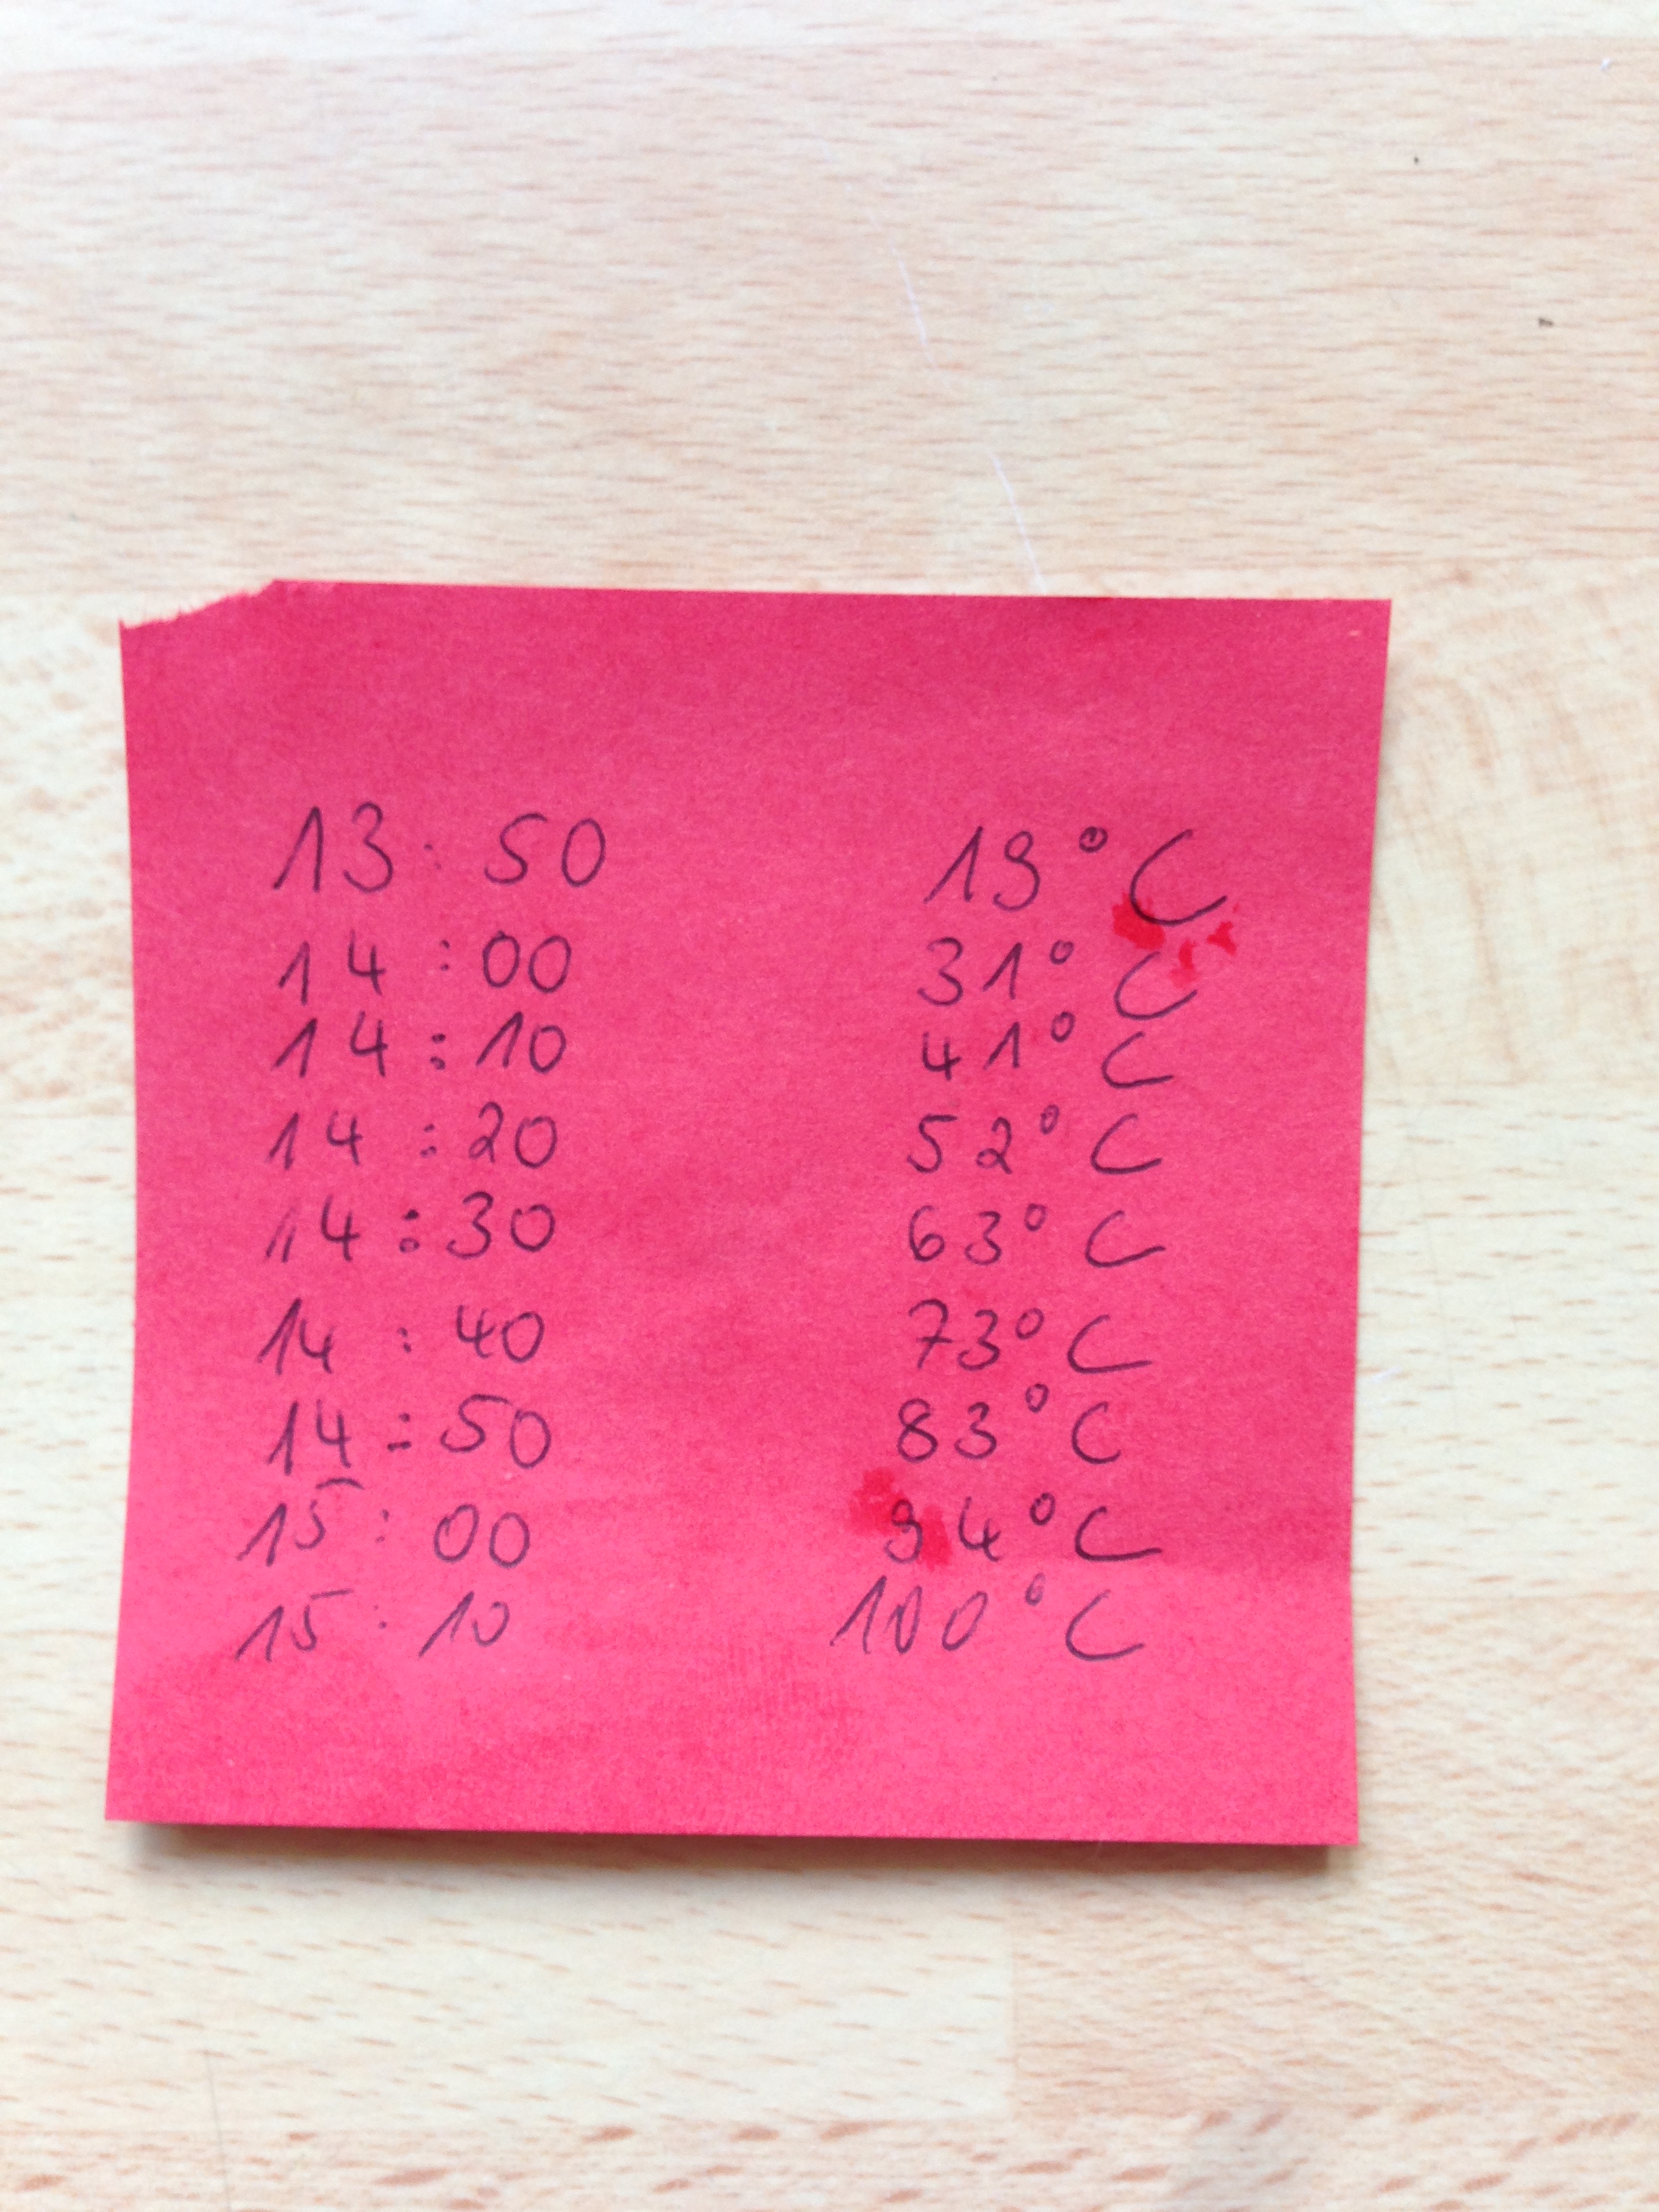 13:50 19°C
14:00 31°C
14:10 41°C
14:20 52°C
14:30 63°C
14:40 73°C
14:50 83°C
15:00 94°C
15:10 100°C